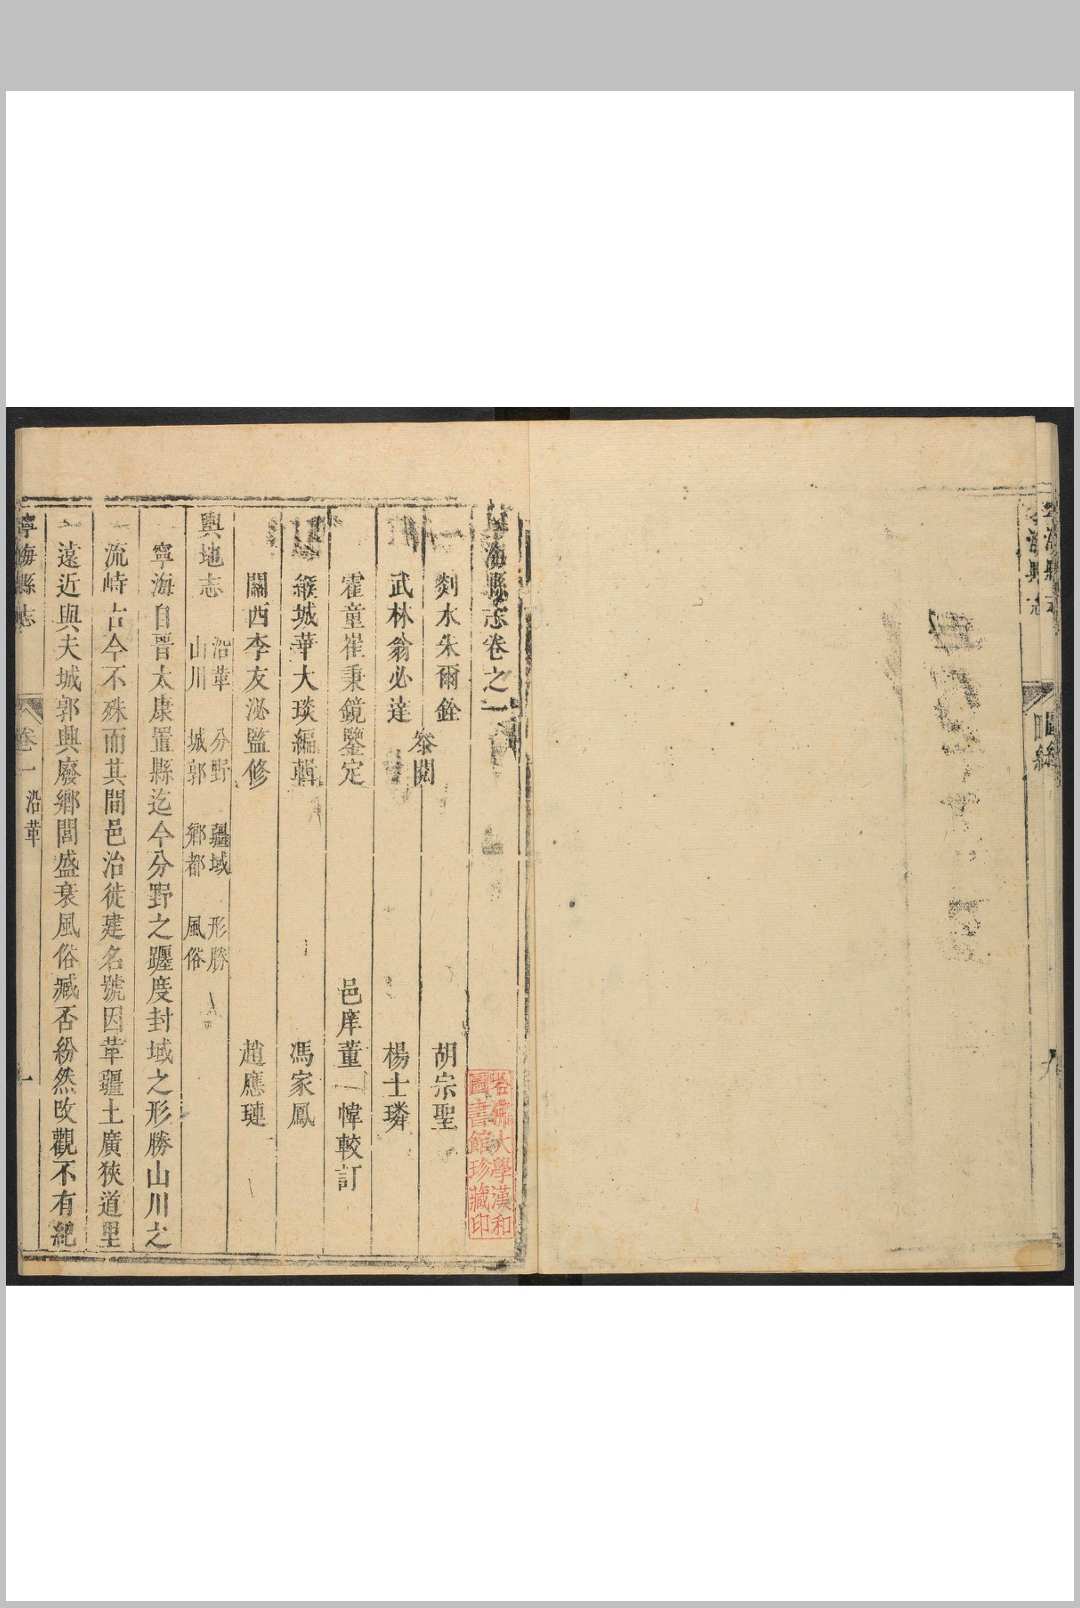 寧海縣志
圖經
九
寧海縣志卷之一
剡水朱爾銓
武林翁必達
叅閱
霍童崔秉鏡鑒定
緱城華大琰編輯
關西李友泌監修
胡宗聖
楊士璘
邑庠董一幃較訂
馮家鳳
趙應璉
輿地志
沿革 分野 疆域 形勝
山川 城郭 鄉都 風俗
寧海自晉太康置縣迄今分野之躔度封域之形勝山川之
流峙古今不殊而其間邑治徙建名號因革疆土廣狹道里
遠近與夫城郭興廢鄉閭盛衰風俗臧否紛然改觀不有紀
寧海縣志
卷一
沿革
一
哈佛大學漢和
圖書館珍藏印